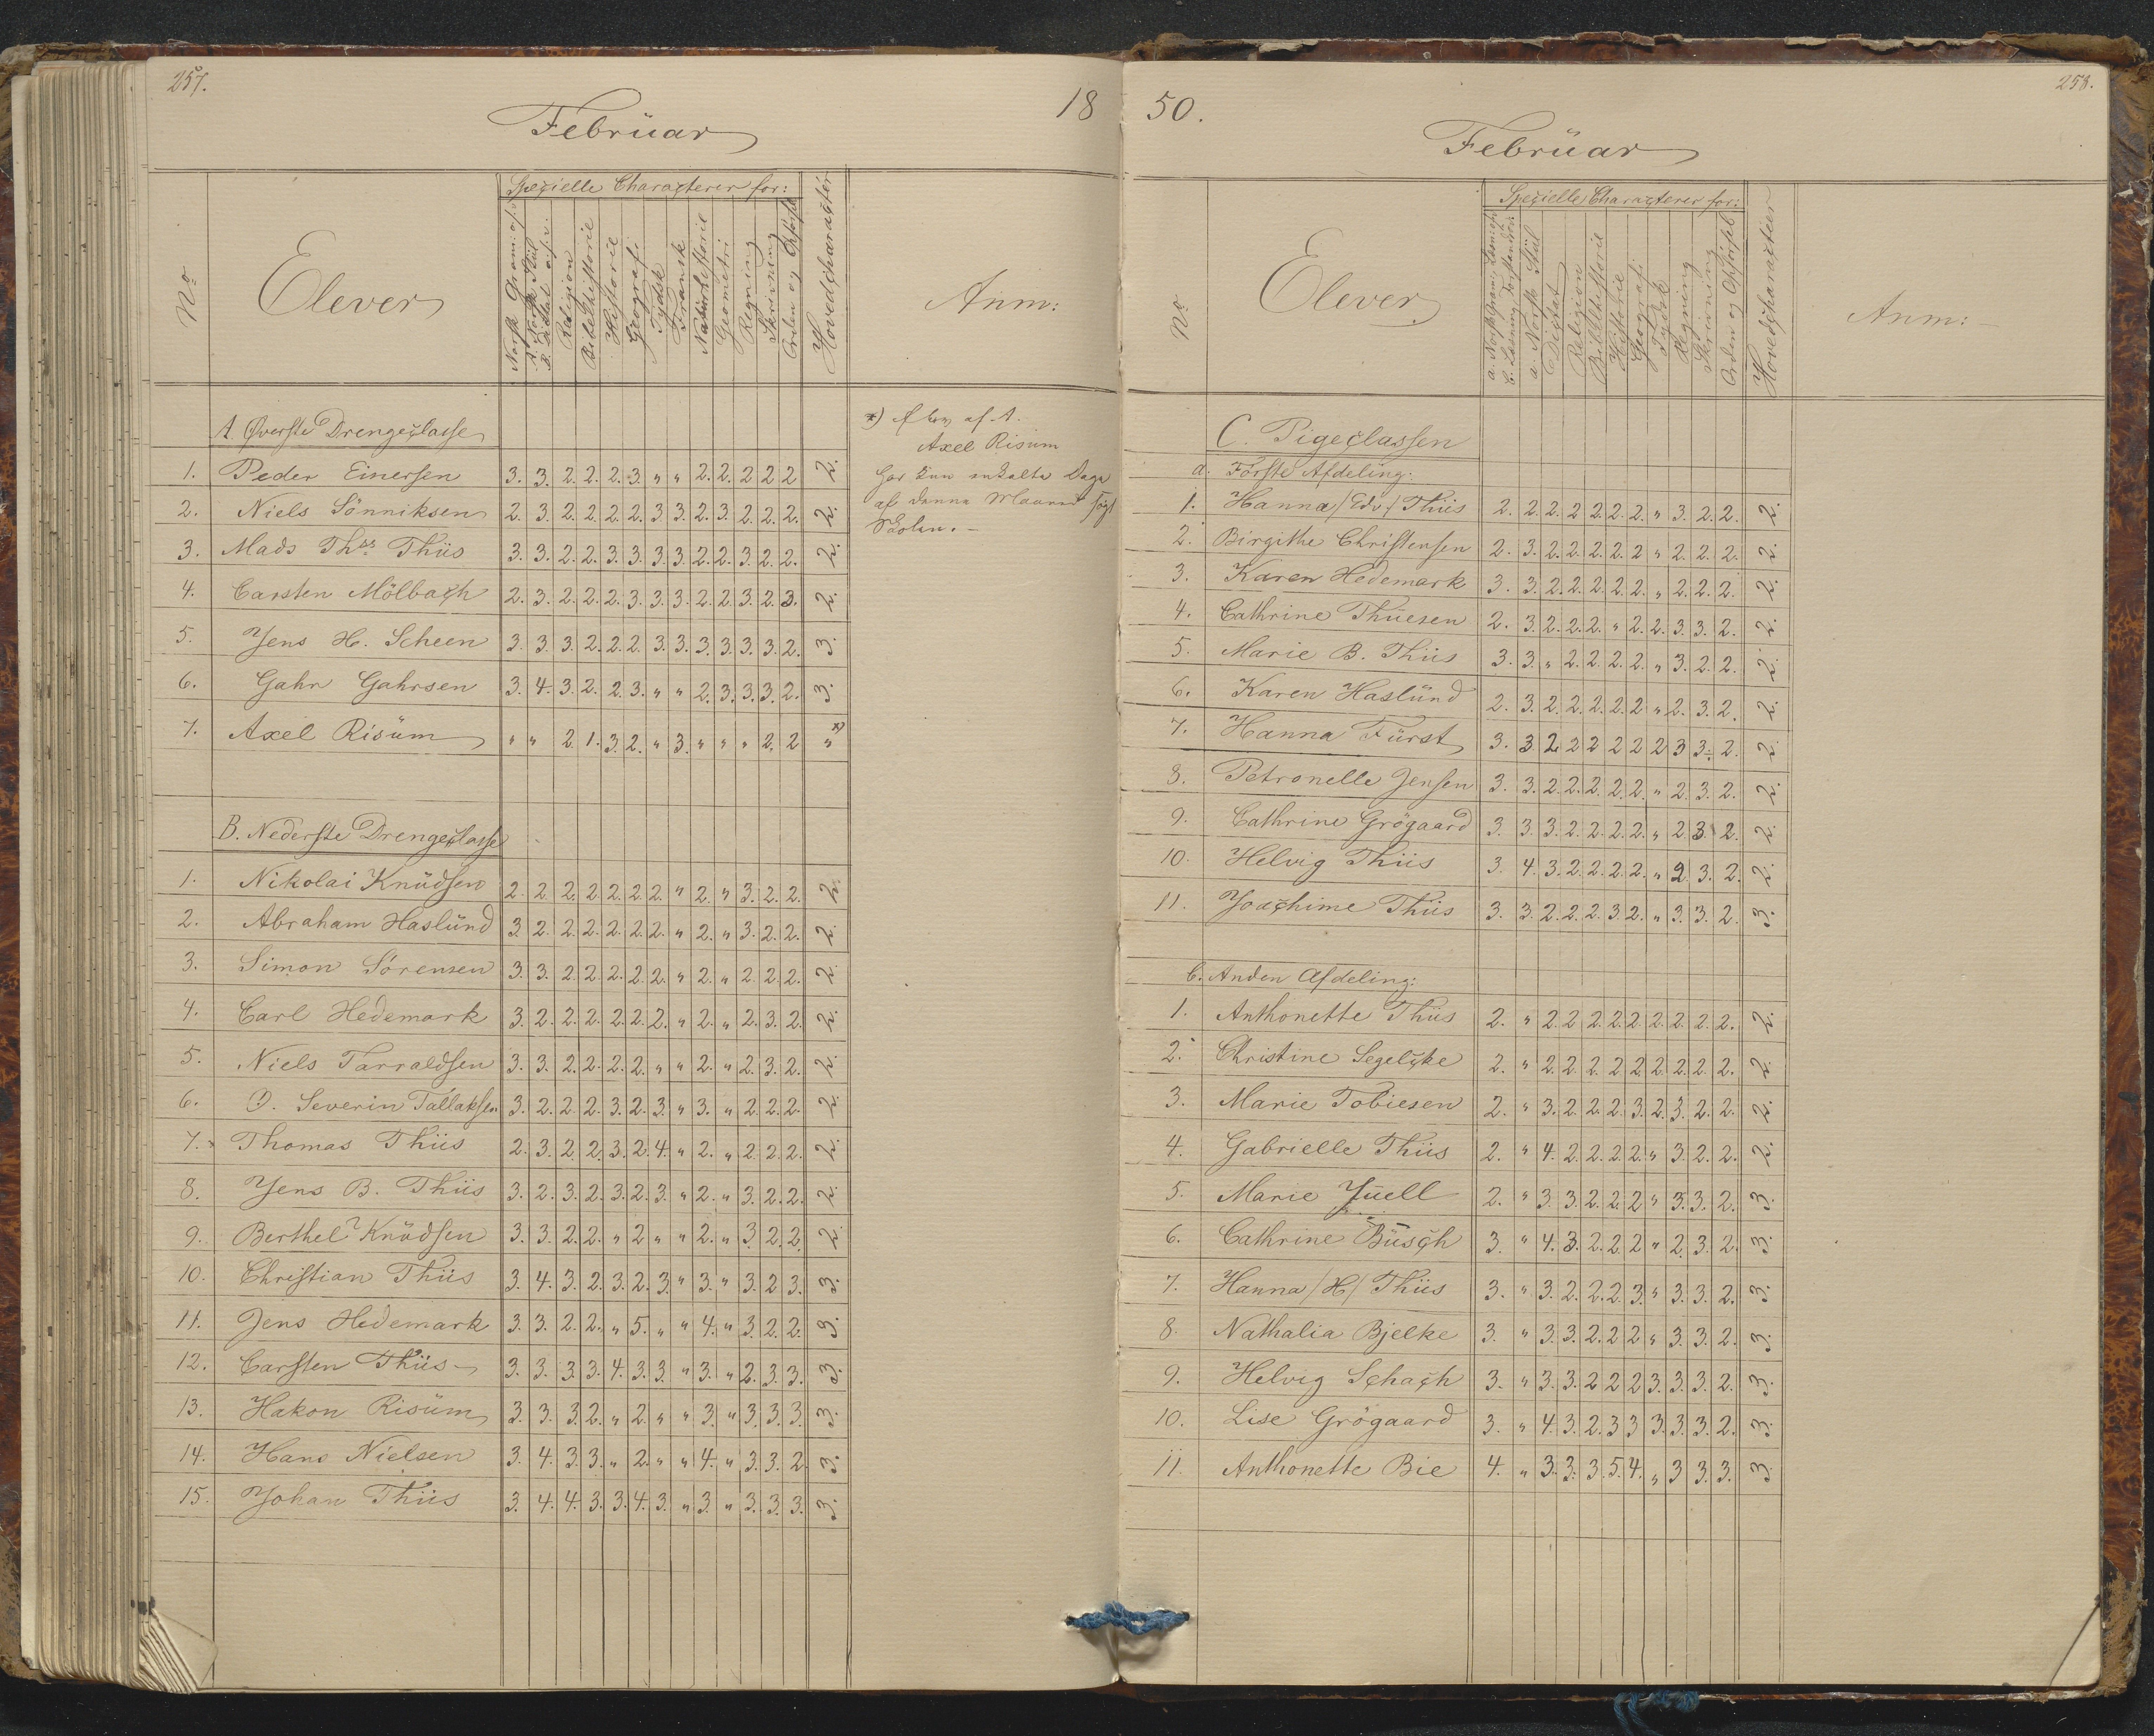 257.
18
Februar
No
Elever
Specielle Characterer for:
Norsk Gram: o.s.v.
A. Norsk Stiil
B. Dictat o.s.v.
Religion
Bibelhistorie
Historie
Geografi
Tydsk
Fransk
Naturhistorie
Geometri
Regning
Skrivning
Orden og Opførsel
Hovedcharacter
Anm:
A Øverste Drengeclasse
1. Peder Einersen 3. 3. 2. 2. 2. 3. " " 2. 2. 2 2 2 2.
2. Niels Sönniksen 2. 3. 2. 2. 2. 2. 3 3. 2. 3. 2. 2. 2. 2.
3. Mads Ths Thiis 3. 3. 2. 2. 3. 3. 3. 3. 2. 2. 3. 2. 2. 2.
4. Carsten Mölbach 2. 3. 2. 2. 2. 3. 3. 3. 2. 2. 3. 2. 3. 2.
5. Jens H. Scheen 3. 3. 3. 2. 2. 2. 3. 3. 3. 3. 3. 3. 2. 3.
6. Gahr Gahrsen 3. 4. 3. 2. 2. 3. " " 2. 3. 3. 3. 2. 3.
7. Axel Risüm " " 2. 1. 3. 2. " 3. " " " 2. 2 " *)
*) Elev af A.
Axel Risüm
har kun enkelte Dage
af denne Maaned søgt
Skolen. -
B. Nederste Drengeclasse
1. Nikolai Knüdsen 2. 2. 2. 2. 2. 2. 2. " 2. " 3. 2. 2. 2.
2. Abraham Haslünd 3 2. 2. 2. 2. 2. 2. " 2. " 3. 2. 2. 2.
3. Simon Sörensen 3. 3. 2. 2. 2. 2. 2. " 2. " 2. 2. 2. 2.
4. Carl Hedemark 3. 2. 2. 2. 2. 2. 2. " 2. " 2. 3. 2. 2.
5. Niels Tarraldsen 3. 3. 2. 2. 2. 2. " " 2. " 2. 3. 2. 2.
6. O. Severin Tallaksen 3. 2. 2. 2. 3. 2. 3. " 3. " 2. 2. 2. 2.
7. Thomas Thiis 2. 3. 2. 2. 3. 2. 4. " 2. " 2. 2. 2. 2.
8. Jens B. Thiis 3. 2. 3. 2. 3. 2. 3. " 2. " 3. 2. 2. 2.
9. Berthel Knüdsen 3. 3. 2. 2. " 2 " " 2. " 3. 2. 2. 2.
10. Christian Thiis 3. 4. 3. 2. 3. 2. 3. " 3. " 3. 2 3. 3.
11. Jens Hedemark 3. 3. 2. 2. " 5. " " 4. " 3. 2. 2. 3.
12. Carsten Thiis 3. 3. 3. 3. 4. 3. 3. " 3. " 2. 3. 3. 3.
13. Hakon Risüm 3. 3. 3. 2. " 2. " " 3. " 3. 3. 3. 3.
14. Hans Nielsen 3. 4. 3. 3. " 2. " " 4. " 3. 3. 2. 3.
15. Johan Thiis 3. 4. 4. 3. 3. 4. 3. " 3. " 3. 3. 3. 3.
258.
50.
Februar
No
Elever
Specielle Characterer for:
a. Norsk Gram:
b. Læsning
a. Norsk Stiil
Dictat
Religion
Bibelhistorie
Historie
Geografi
Tydsk
Regning
Skrivning
Orden og Opførsel
Hovedcharacter
Anm: -
C. Pigeclassen
a. Første Afdeling:
1. Hanna /Edv./ Thiis 2. 2. 2. 2 2. 2. 2. " 3. 2. 2. 2.
2. Birgithe Christensen 2. 3. 2. 2. 2. 2. 2 " 2. 2. 2. 2.
3. Karen Hedemark 3. 3. 2. 2. 2. 2. 2. " 2. 2. 2. 2.
4. Cathrine Thüesen 2. 3. 2. 2. 2. " 2. 2. 3 3. 2. 2.
5. Marie B. Thiis 3. 3. " 2. 2. 2. 2. " 3. 2. 2. 2.
6. Karen Haslünd 2. 3. 2. 2. 2. 2. 2 " 2. 3. 2. 2.
7. Hanna Fürst 3. 3 2 2 2 2 2 2 3 3. 2. 2.
8. Petronelle Jensen 3. 3. 2. 2. 2. 2. 2. " 2. 3. 2. 2.
9. Cathrine Grögaard 3. 3. 3. 2. 2. 2. 2. " 2. 3. 2. 2.
10. Helvig Thiis 3. 4. 3. 2. 2. 2. 2. " 2. 3. 2. 2.
11. Joachime Thiis 3. 3. 2. 2. 2. 3. 2. " 3. 3. 2. 3.
b. Anden Afdeling:
1. Anthonette Thiis 2. " 2. 2 2. 2. 2. 2. 2. 2. 2. 2.
2. Christine Segelcke 2. " 2. 2. 2. 2. 2. 2. 2. 2. 2. 2.
3. Marie Tobiesen 2. " 3. 2. 2. 2. 3. 2. 3. 2. 2. 2.
4. Gabrielle Thiis 2. " 4. 2. 2. 2. 2. " 3. 2. 2. 2.
5. Marie Jüell 2. " 3. 3. 2. 2. 2 " 3. 3. 2. 3.
6. Cathrine Büsch 3. " 4. 3. 2. 2. 2 " 2. 3. 2. 3.
7. Hanna /H/ Thiis 3. " 3. 2. 2. 2. 3. " 3. 3. 2. 3.
8. Nathalia Bjelke 3. " 3. 3. 2. 2. 2 " 3. 3. 2. 3.
9. Helvig Schach 3. " 3. 3. 2 2 2 3. 3. 3. 2. 3.
10. Lise Grögaard 3. " 4. 3. 2. 3 3 3. 3. 3. 2. 3.
11. Anthonette Bie 4. " 3. 3. 3. 5. 4. " 3 3. 3. 3.